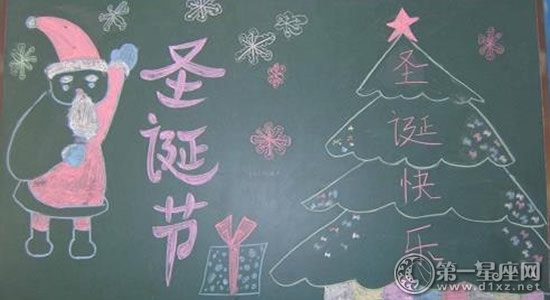 圣诞节
圣诞快乐
第一星座网
www.d1xz.net